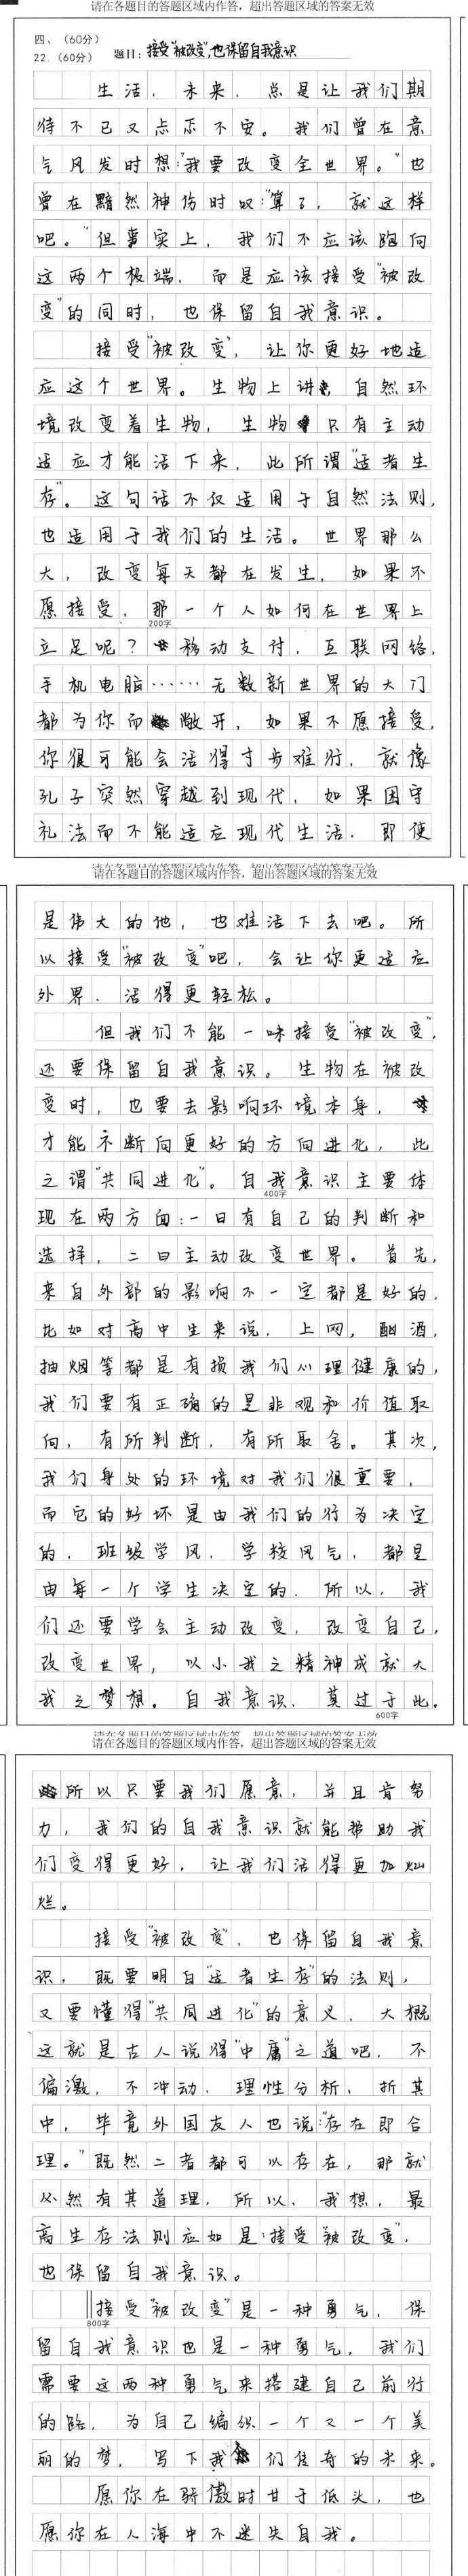 请在各题目的答题区域内作答，超出答题区域的答案无效
四、（60分）
22.（60分） 题目：接受“被改变”，也保留自我意识
生活，未来，总是让我们期
待不已又忐忑不安。我们曾在意
气风发时想：“我要改变全世界。”也
曾在黯然神伤时叹：“算了，就这样
吧。”但事实上，我们不应该跑向
这两个极端，而是应该接受“被改
变”的同时，也保留自我意识。
接受“被改变”，让你更好地适
应这个世界。生物上讲，自然环
境改变着生物，生物只有主动
适应才能活下来，此所谓“适者生
存”。这句话不仅适用于自然法则，
也适用于我们的生活。世界那么
大，改变每天都在发生，如果不
愿接受，那一个人如何在世界上
200字
立足呢？移动支付，互联网络，
手机电脑……无数新世界的大门
都为你而敞开，如果不愿接受，
你很可能会活得寸步难行，就像
孔子突然穿越到现代，如果困守
礼法而不能适应现代生活，即使
请在各题目的答题区域内作答，超出答题区域的答案无效
是伟大的他，也难活下去吧。所
以接受“被改变”吧，会让你更适应
外界，活得更轻松。
但我们不能一味接受“被改变”，
还要保留自我意识。生物在被改
变时，也要去影响环境本身，
才能不断向更好的方向进化，此
之谓“共同进化”。自我意识主要体
400字
现在两方面：一曰有自己的判断和
选择，二曰主动改变世界。首先，
来自外部的影响不一定都是好的，
比如对高中生来说，上网，酗酒，
抽烟等都是有损我们心理健康的，
我们要有正确的是非观和价值取
向，有所判断，有所取舍。其次，
我们身处的环境对我们很重要，
而它的好坏是由我们的行为决定
的，班级学风，学校风气，都是
由每一个学生决定的，所以，我
们还要学会主动改变，改变自己，
改变世界，以小我之精神成就大
我之梦想。自我意识，莫过于此。
600字
请在各题目的答题区域内作答，超出答题区域的答案无效
请在各题目的答题区域内作答，超出答题区域的答案无效
所以只要我们愿意，并且肯努
力，我们的自我意识就能帮助我
们变得更好，让我们活得更加灿
烂。
接受“被改变”，也保留自我意
识，既要明白“适者生存”的法则，
又要懂得“共同进化”的意义，大概
这就是古人说得“中庸”之道吧，不
偏激，不冲动，理性分析，折其
中，毕竟外国友人也说：“存在即合
理。”既然二者都可以存在，那就
必然有其道理，所以，我想，最
高生存法则应如是：接受“被改变”，
也保留自我意识。
接受“被改变”是一种勇气，保
800字
留自我意识也是一种勇气，我们
需要这两种勇气来搭建自己前行
的路，为自己编织一个又一个美
丽的梦，写下我们传奇的未来。
愿你在骄傲时甘于低头，也
愿你在人海中不迷失自我。